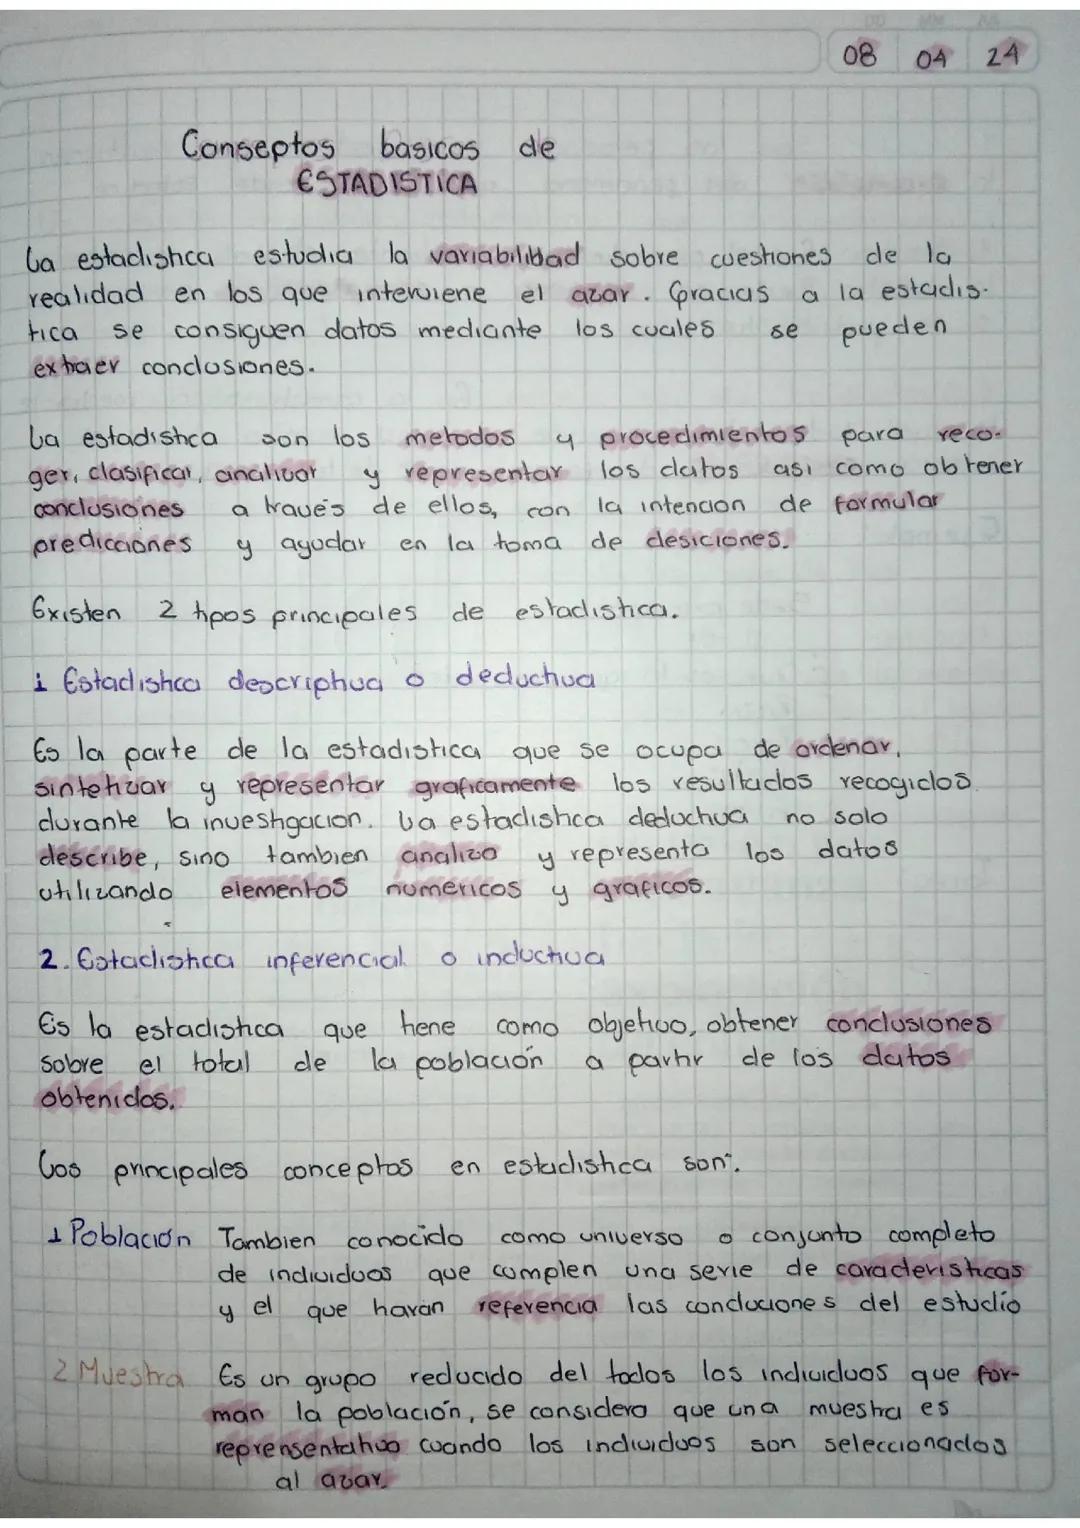 08 04 24
Conseptos basicos de
ESTADISTICA
La estadistica estudia la variabilidad sobre cuestiones de la
realidad en los que interviene el azar. Gracias a la estadis-
tica se consiguen datos mediante los cuales se pueden
extraer conclusiones.
La estadistica son los metodos y procedimientos para reco-
ger, clasificar, analizar y representar los datos asi como obtener
conclusiones a través de ellos, con la intencion de formular
predicciones y ayudar en la toma de desiciones.
Existen 2 tipos principales de estadistica.
1 Estadistica descriptiva o deductiva
Es la parte de la estadistica que se ocupa de ordenar,
sintetizar y representar graficamente los resultados recogidos
durante la investigacion. La estadistica deductiva no solo
describe, sino tambien analiza y representa los datos
utilizando elementos numericos y graficos.
2. Estadistica inferencial o inductiva
Es la estadistica que tiene como objetivo, obtener conclusiones
sobre el total de la población a partir de los datos
obtenidos.
Los principales conceptos en estadistica son:
1 Población Tambien conocido como universo o conjunto completo
de individuos que cumplen una serie de caracteristicas
y el que harán referencia las conduciones del estudio
2 Muestra Es un grupo reducido del todos los individuos que for-
man la población, se considera que una muestra es
reprensentativo cuando los individuos son seleccionados
al azar.